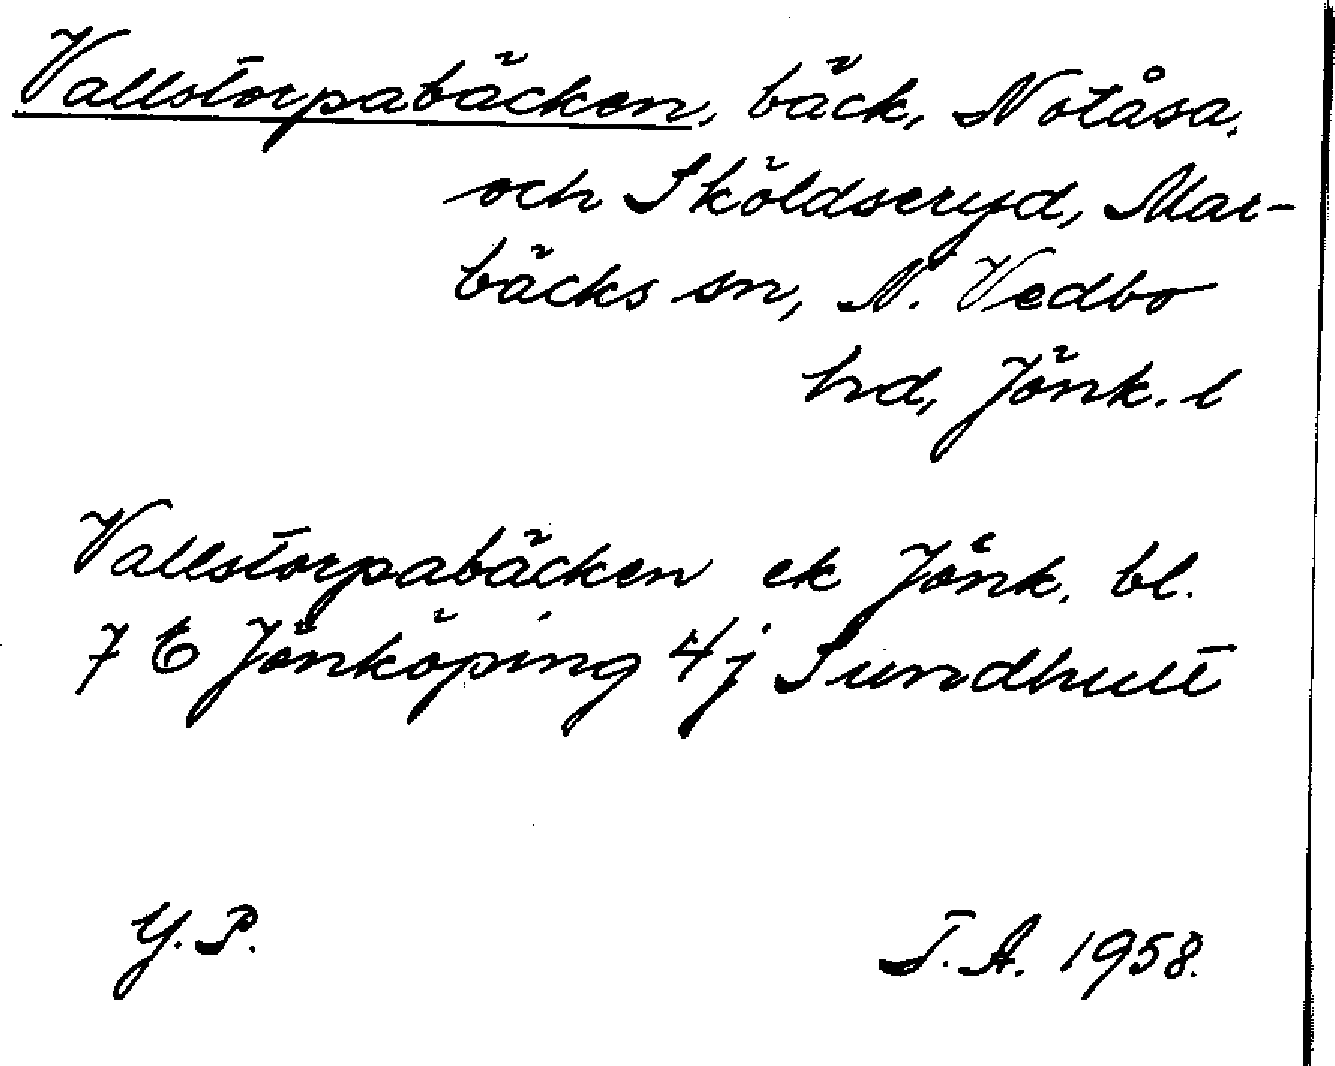 Vallstorpabäcken, bäck, Notåsa,
och Sköldseryd, Mar-
bäcks sn, N. Vedbo
hd, Jönk. l
Vallstorpabäcken ek Jönk. bl.
7 E Jönköping 4 j Sundhult
Y.P.
T.A. 1958.